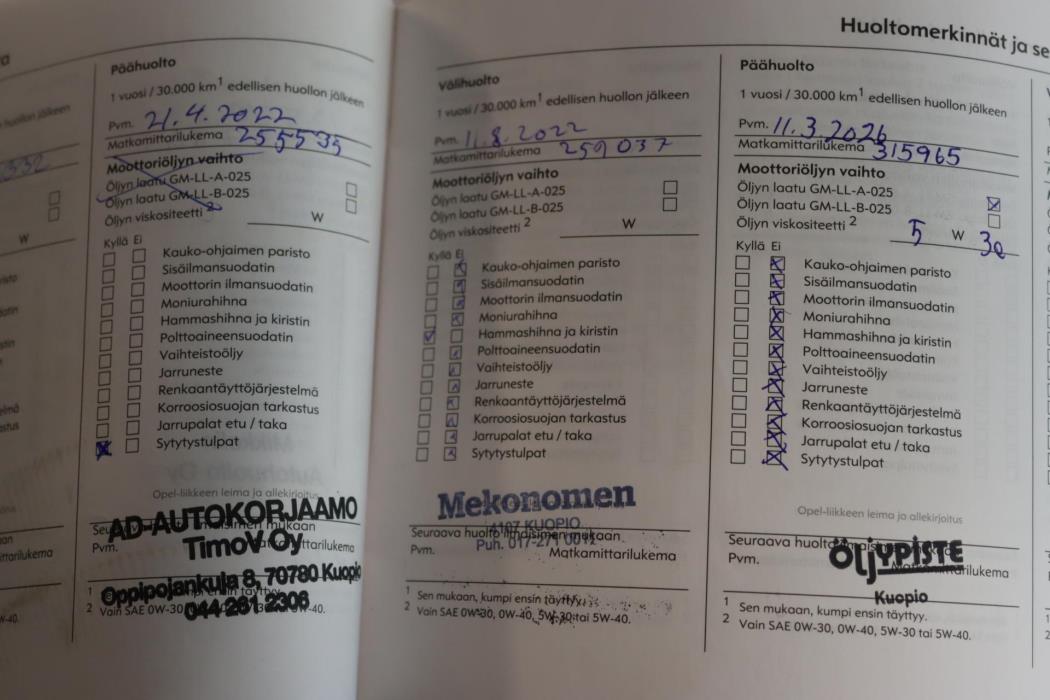 Huoltomerkinnät ja se
Päähuolto
1 vuosi / 30.000 km1 edellisen huollon jälkeen
Pvm. 21.4.2022
Matkamittarilukema 255535
Moottoriöljyn vaihto
Öljyn laatu GM-LL-A-025
Öljyn laatu GM-LL-B-025
Öljyn viskositeetti 2
W
Kyllä Ei
Kauko-ohjaimen paristo
Sisäilmansuodatin
Moottorin ilmansuodatin
Moniurahihna
Hammashihna ja kiristin
Polttoaineensuodatin
Vaihteistoöljy
Jarruneste
Renkaantäyttöjärjestelmä
Korroosiosuojan tarkastus
Jarrupalat etu / taka
Sytytystulpat
Opel-liikkeen leima ja allekirjoitus
AD-AUTOKORJAAMO
TimoV Oy
Pvm.
Oppipojankuja 8, 70780 Kuopio
044 261 2306
2 Vain SAE 0W-30
Välihuolto
1 vuosi / 30.000 km1 edellisen huollon jälkeen
Pvm. 11.8.2022
Matkamittarilukema 259037
Moottoriöljyn vaihto
Öljyn laatu GM-LL-A-025
Öljyn laatu GM-LL-B-025
Öljyn viskositeetti 2
W
Kyllä Ei
Kauko-ohjaimen paristo
Sisäilmansuodatin
Moottorin ilmansuodatin
Moniurahihna
Hammashihna ja kiristin
Polttoaineensuodatin
Vaihteistoöljy
Jarruneste
Renkaantäyttöjärjestelmä
Korroosiosuojan tarkastus
Jarrupalat etu / taka
Sytytystulpat
Mekonomen
KUOPIO
Seuraava huolto ilmaisimen mukaan
Puh. 017-271 0012
Pvm. Matkamittarilukema
1 Sen mukaan, kumpi ensin täyttyy.
2 Vain SAE 0W-30, 0W-40, 5W-30 tai 5W-40.
Päähuolto
1 vuosi / 30.000 km1 edellisen huollon jälkeen
Pvm. 11.3.2026
Matkamittarilukema 315965
Moottoriöljyn vaihto
Öljyn laatu GM-LL-A-025
Öljyn laatu GM-LL-B-025
Öljyn viskositeetti 2
5 W 30
Kyllä Ei
Kauko-ohjaimen paristo
Sisäilmansuodatin
Moottorin ilmansuodatin
Moniurahihna
Hammashihna ja kiristin
Polttoaineensuodatin
Vaihteistoöljy
Jarruneste
Renkaantäyttöjärjestelmä
Korroosiosuojan tarkastus
Jarrupalat etu / taka
Sytytystulpat
Opel-liikkeen leima ja allekirjoitus
Seuraava
ÖljYPISTE
Pvm. Matkamittarilukema
Kuopio
1 Sen mukaan, kumpi ensin täyttyy.
2 Vain SAE 0W-30, 0W-40, 5W-30 tai 5W-40.